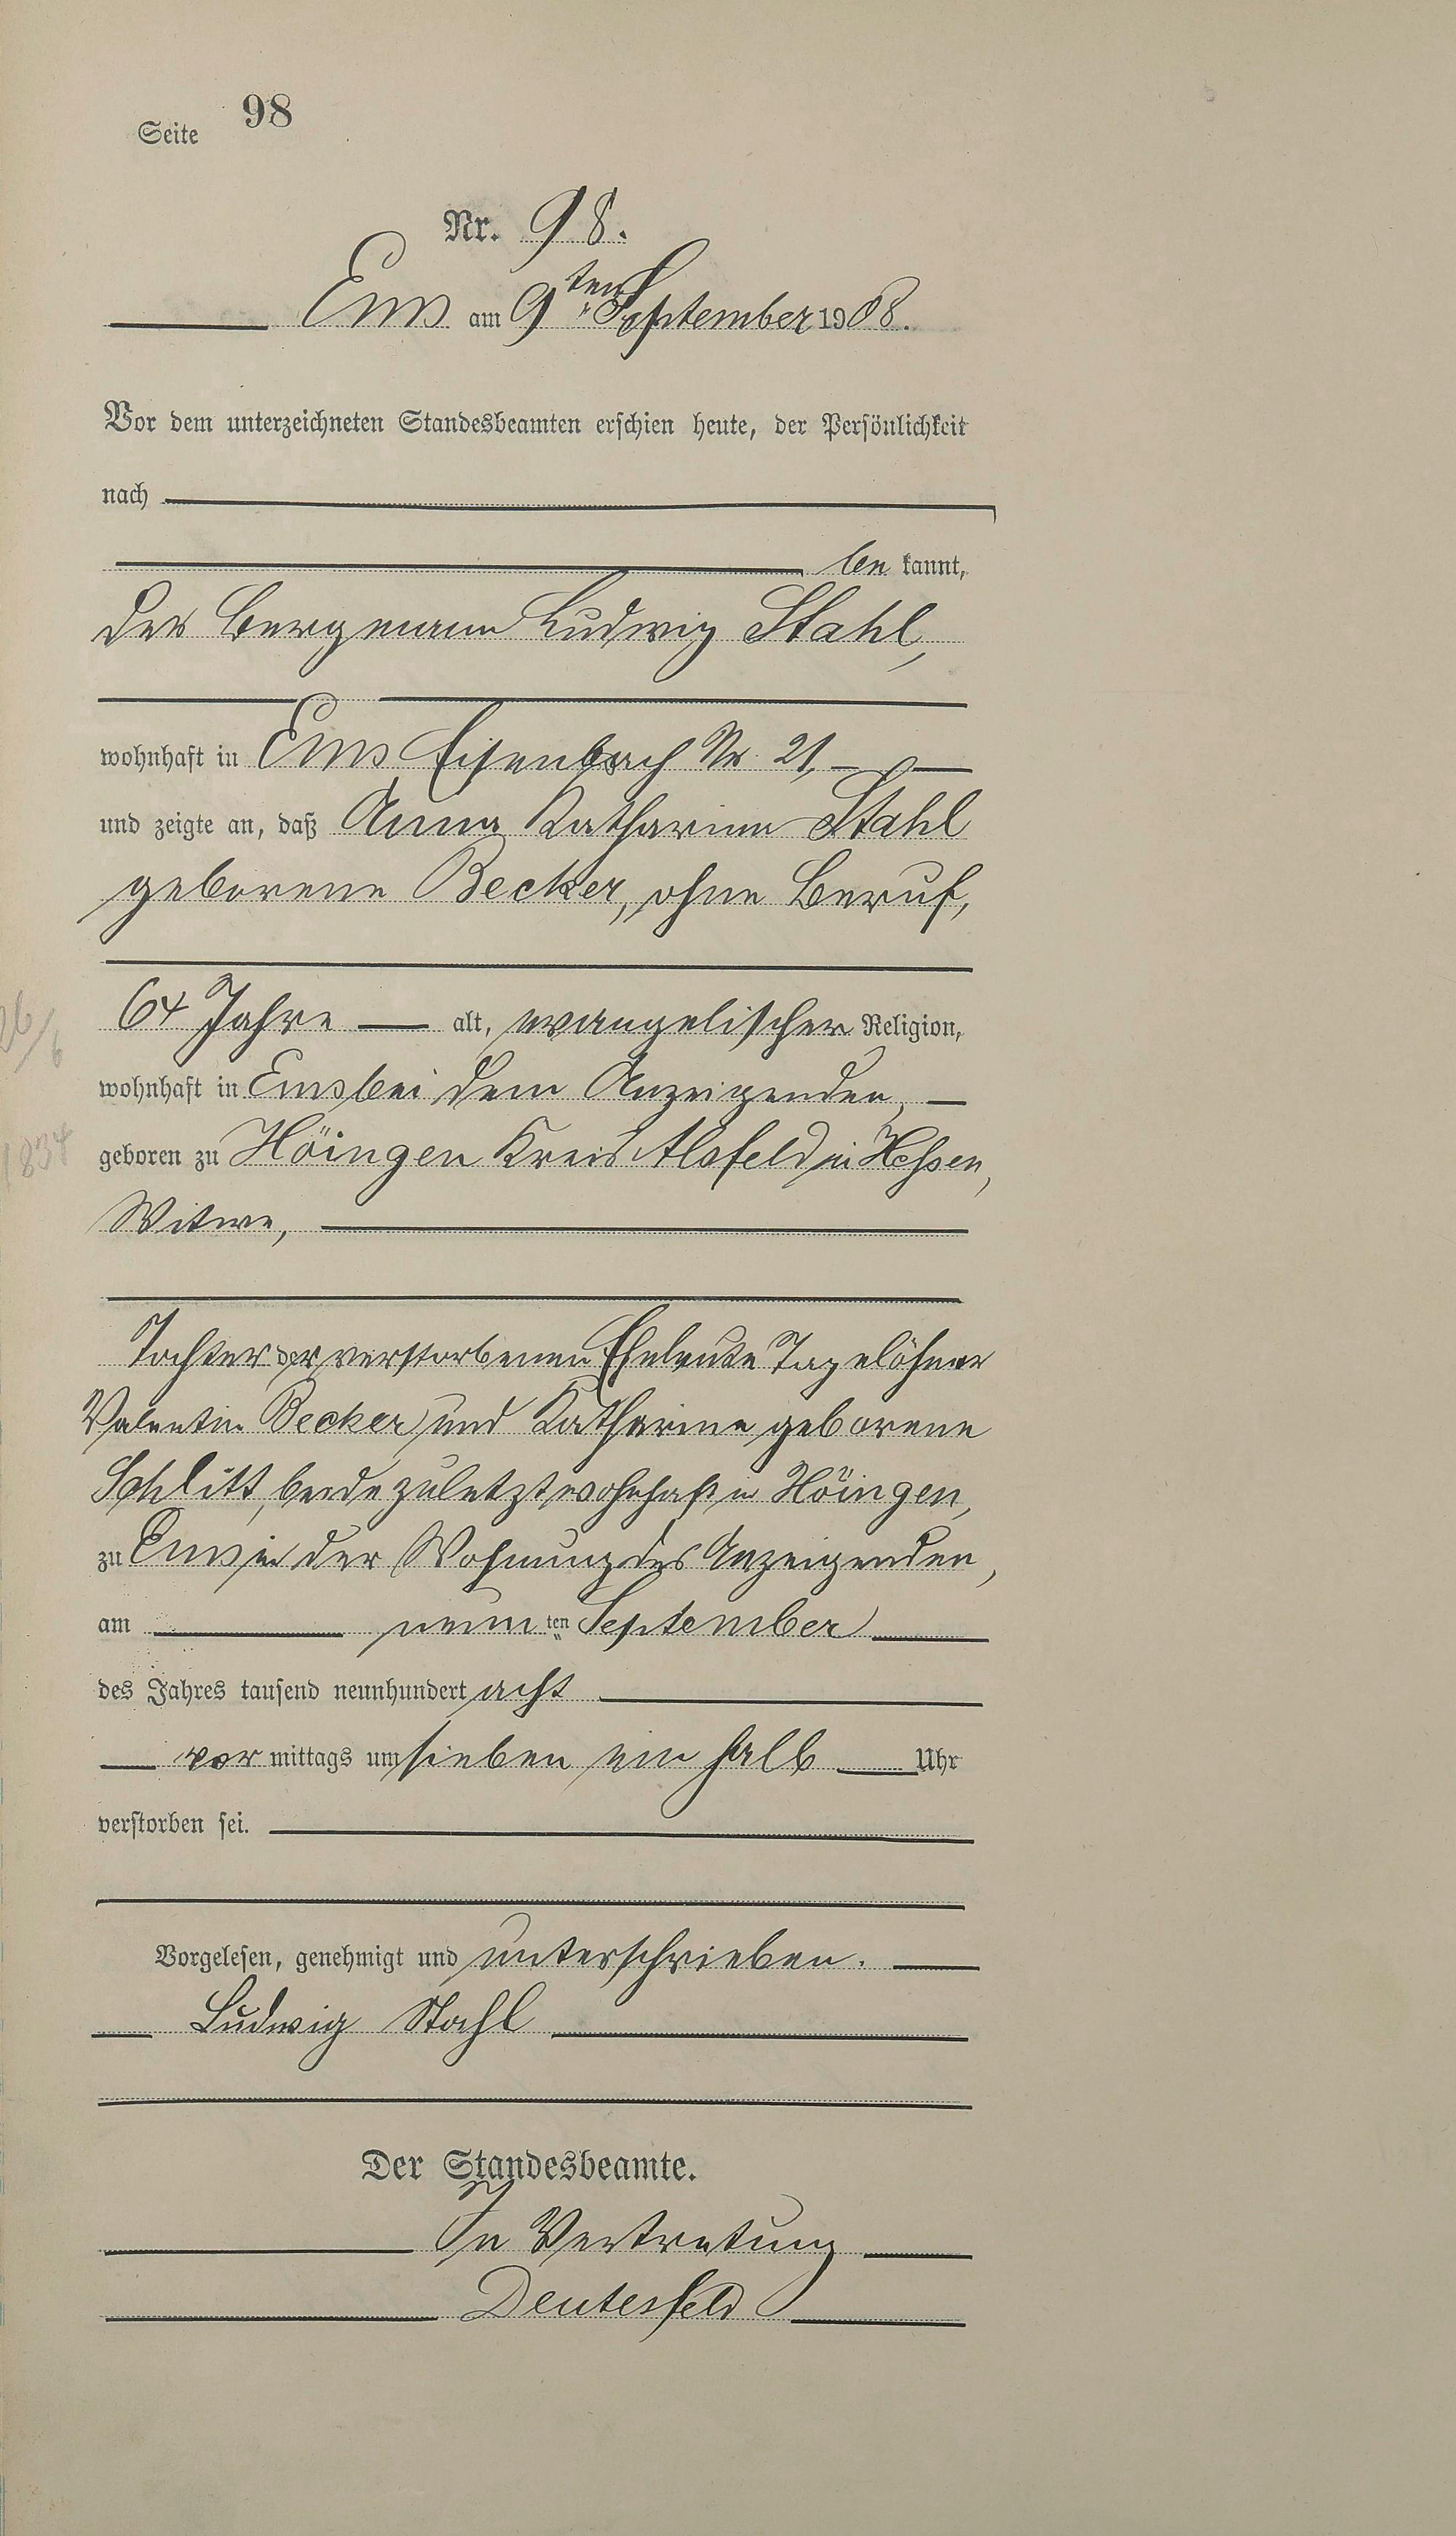 Seite 98
Nr. 98.
Ems am 9ten September 1908.
Vor dem unterzeichneten Standesbeamten erschien heute, der Persönlichkeit
nach
be kannt,
der Bergmann Ludwig Stahl,
wohnhaft in Ems Eisenbach Nr. 21,
und zeigte an, daß Anna Katharina Stahl
geborene Becker, ohne Beruf,
64 Jahre alt, evangelischer Religion,
wohnhaft in Ems bei dem Anzeigenden,
geboren zu Höingen Kreis Alsfeld in Hessen,
Witwe,
Tochter der verstorbenen Eheleute Tagelöhner
Valentin Becker und Katharine geborene
Schlitt, beide zuletzt wohnhaft in Höingen,
zu Ems in der Wohnung des Anzeigenden,
am neunten September
des Jahres tausend neunhundert acht
vor mittags um sieben ein halb Uhr
verstorben sei.
Vorgelesen, genehmigt und unterschrieben.
Ludwig Stahl
Der Standesbeamte.
In Vertretung
Deutesfeld